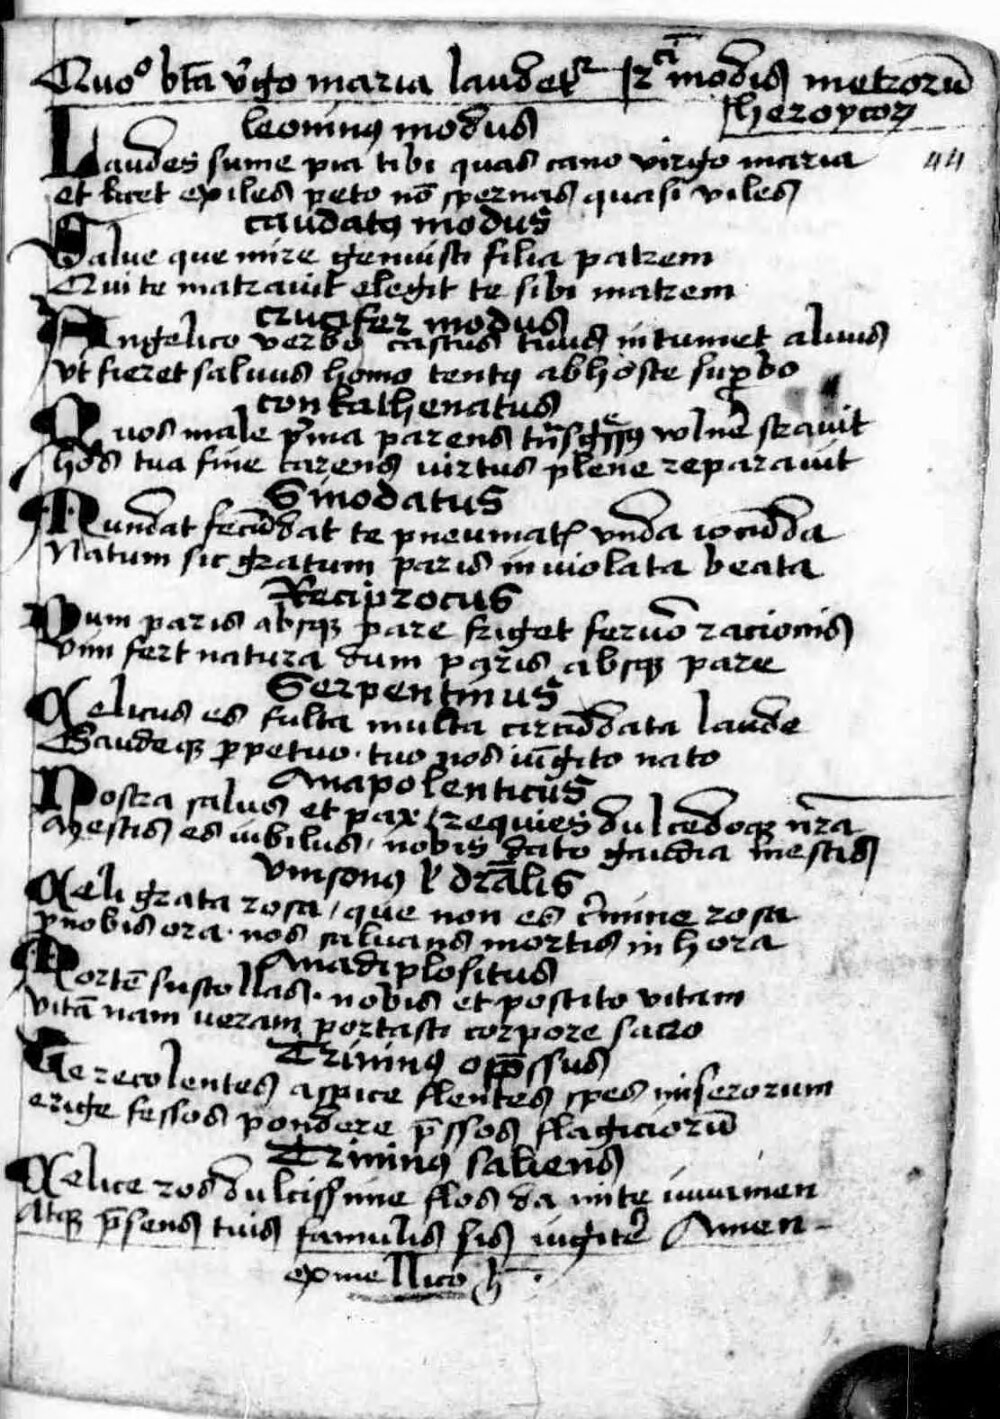 Quo° bta vgo maria laudetr 12ci modis metrorū
heroycorꝝ
leoninꝯ modus
44
Laudes sume pia tibi quas cano virgo maria
et licet exiles peto nō spernas quasi viles
caudatꝯ modus
Salue que mire genuisti filia patrem
Qui te matrauit elegit te sibi matrem
crucifer modus
Angelico verbo castus tuus intumet aluus
Vt fieret saluus homo tentꝯ ab hoste suꝑbo
conkathenatus
Quos male pma parens vulnē strauit
hos tua fine carens virtus plene reparauit
Sinodatus
Mundat fecūdat te pneumatꝭ vnda iocūda
Natum sic gratum paris inuiolata beata
Reciprocus
Dum paris absqꝫ pare friget feruō racionis
Vim fert natura dum paris absqꝫ pare
Serpentinus
Celicus es fulta multa circūdata laude
Gaudeqꝫ ꝑpetuo tuo nos iūgito nato
Anapolenticus
Nostra salus et pax / requies dulcedoqꝫ nr̄a
Mestis es iubilus / nobis dato gaudia mestis
vnisonꝯ l' drālis
Celi grata rosa / que non es cͥmine rosa
ꝓ nobis ora nos saluans mortis in hora
Anadiplositus
Mortē sustollas nobis et postito vitam
Vitā nam ueram portasti corpore sacro
Trininꝯ opp̄ssus
Te recolentes aspice flentes spes miserorum
erige fessos pondere p̄ssos flagiciorū
Trininꝯ saliens
Celice ros dulcissime flos da mite iuuamen
Atqꝫ p̄sens tuis famulis sis iugitē Amen
ex mellico